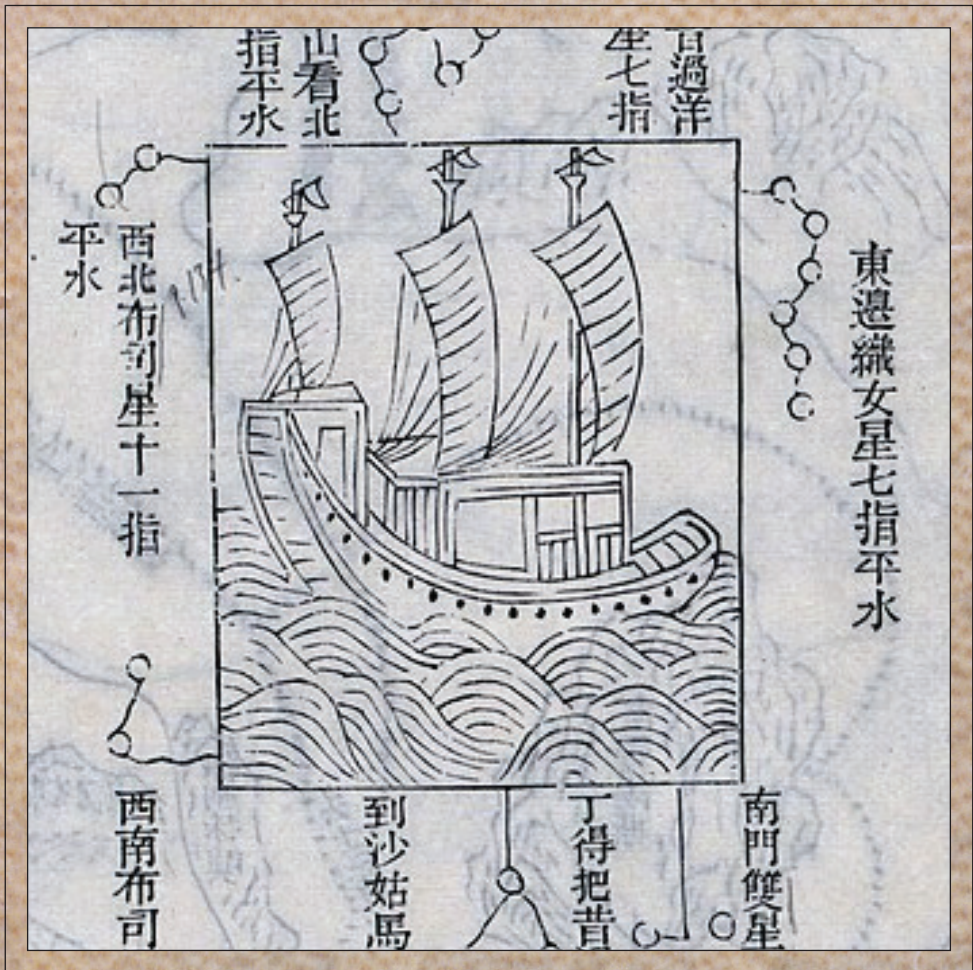 昔過洋
星七指
山看北
指平水
東邊織女星七指平水
西北布司星十一指
平水
南門雙星
丁得把昔
到沙姑馬
西南布司